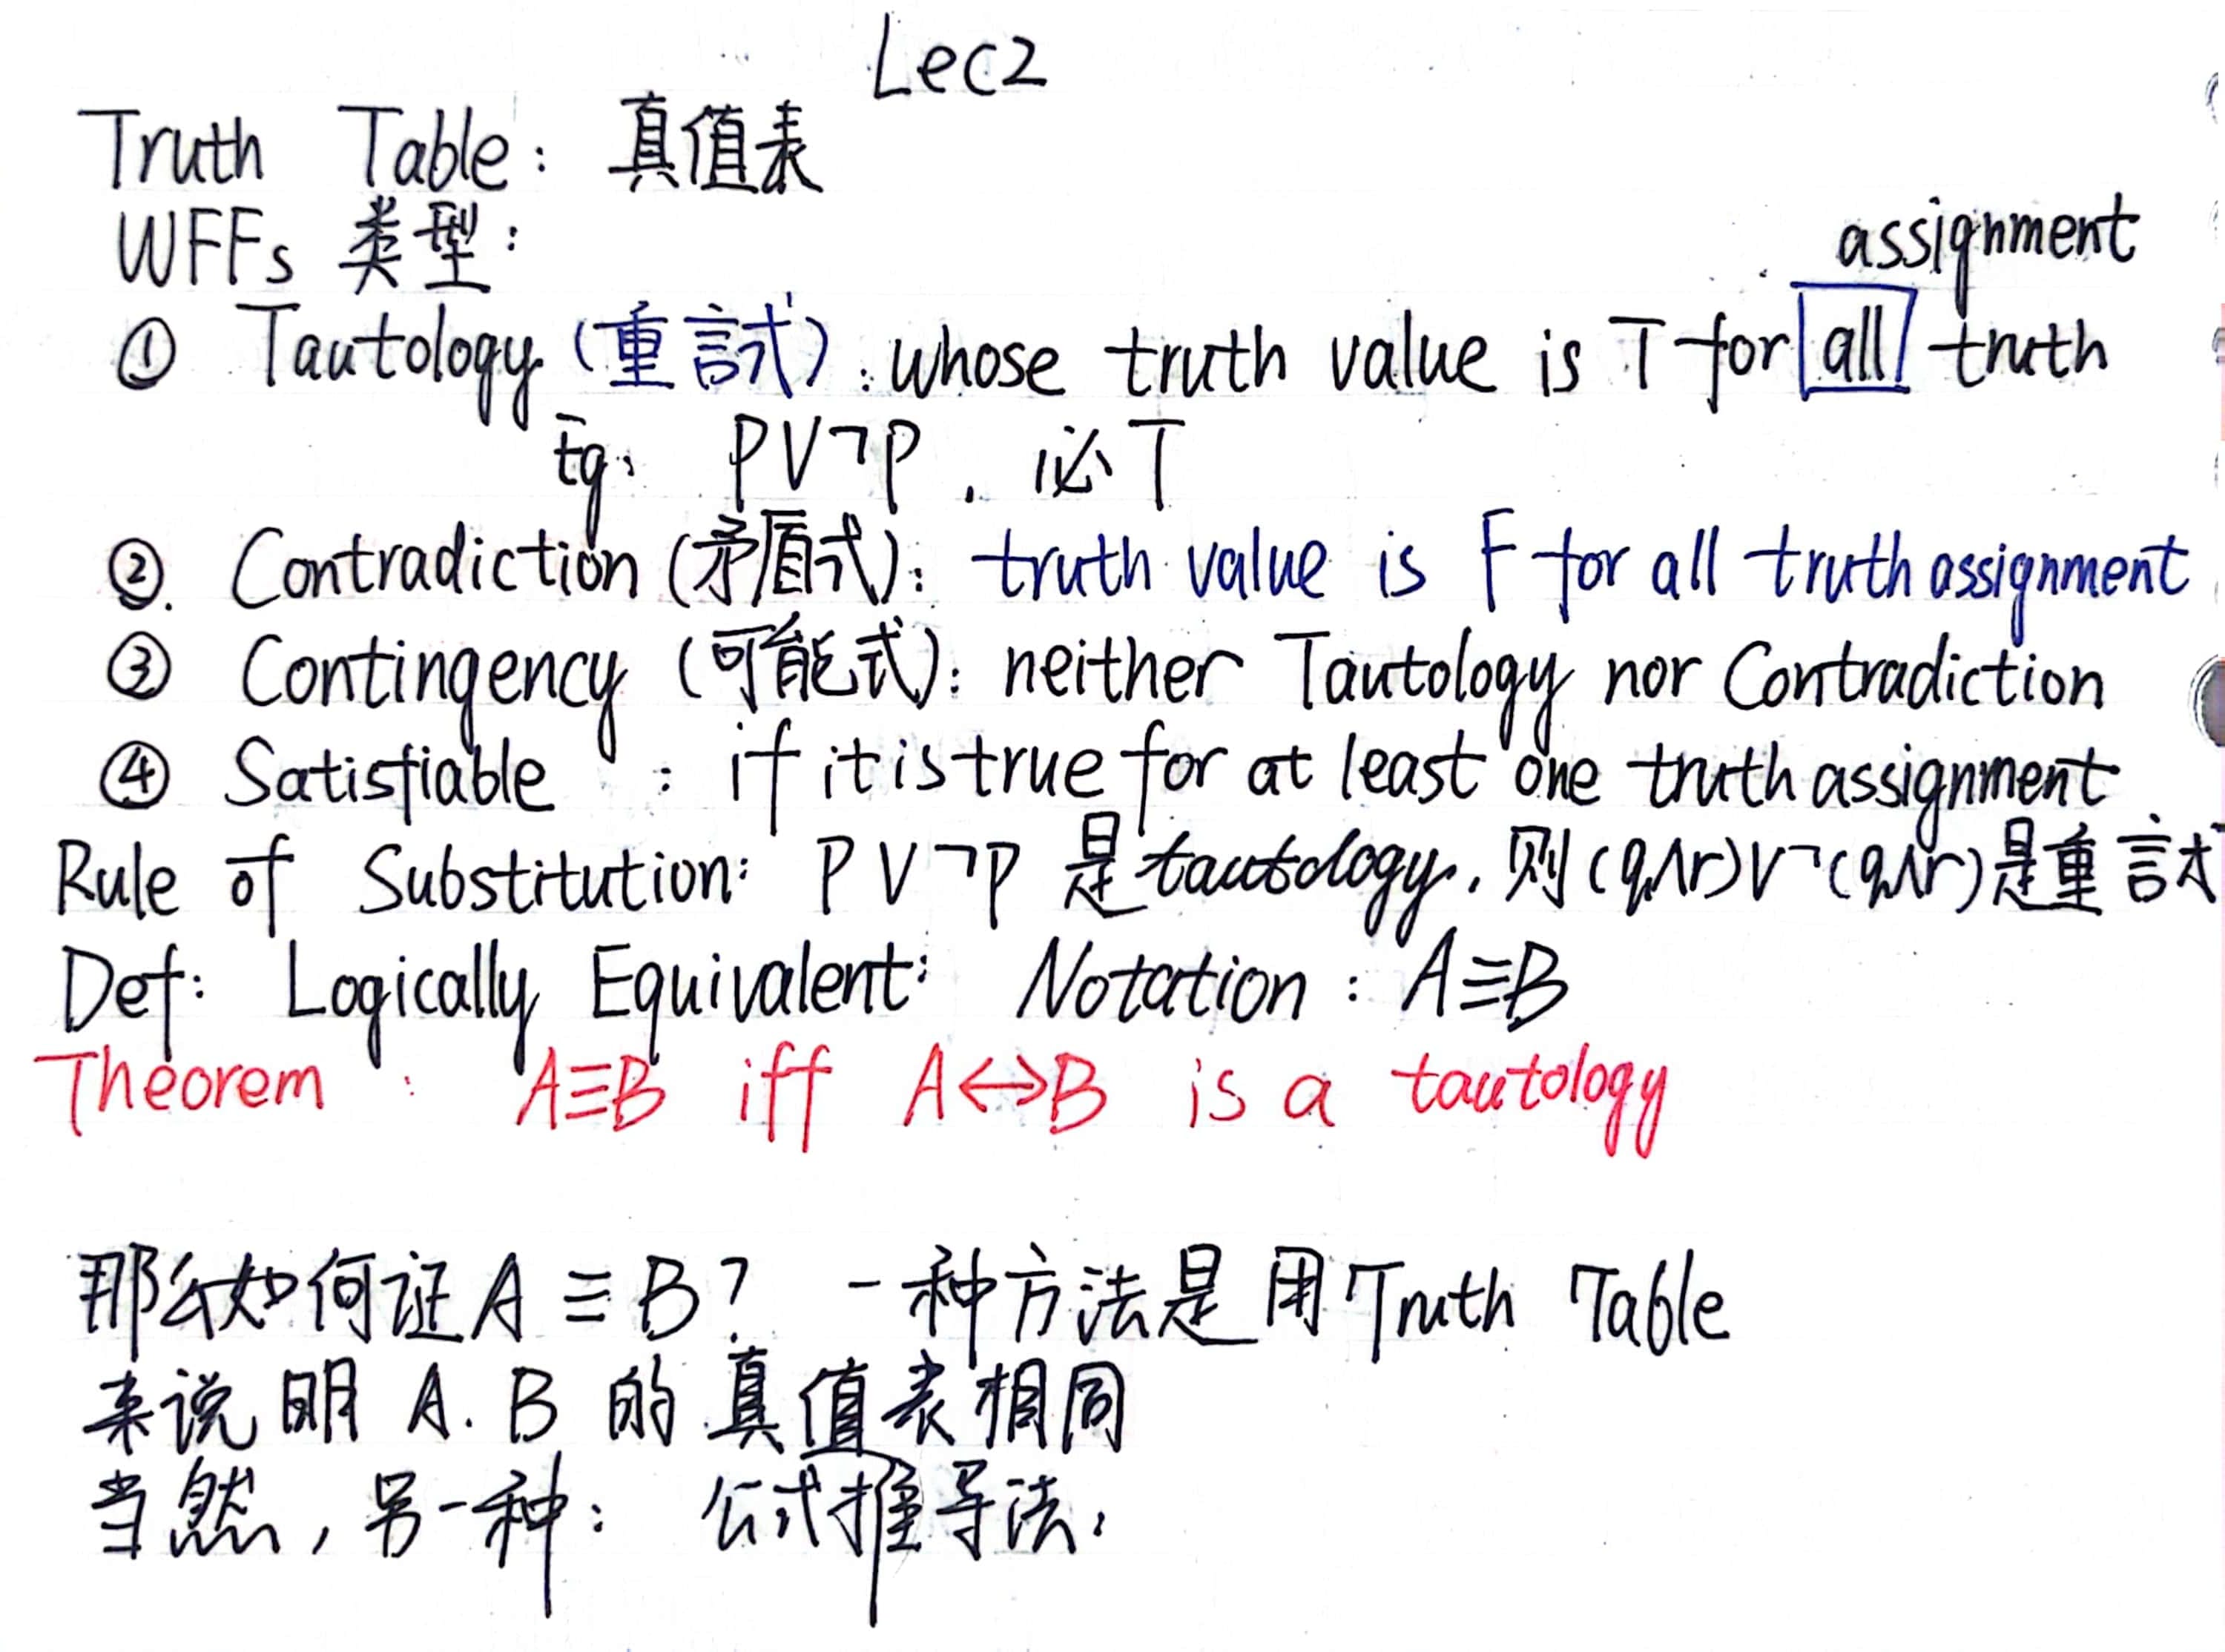 Lec2
Truth Table: 真值表
WFFs 类型:
assignment
① Tautology (重言式): whose truth value is T for all truth
Eg: P∨¬P, 必T
②. Contradiction (矛盾式): truth value is F for all truth assignment
③ Contingency (可能式): neither Tautology nor Contradiction
④ Satisfiable : if it is true for at least one truth assignment
Rule of Substitution: P∨¬P 是tautology, 则(q∧r)∨¬(q∧r)是重言式
Def: Logically Equivalent: Notation: A≡B
Theorem : A≡B iff A↔B is a tautology
那么如何证A≡B? 一种方法是用Truth Table
来说明 A.B 的真值表相同
当然, 另一种: 公式推导法,